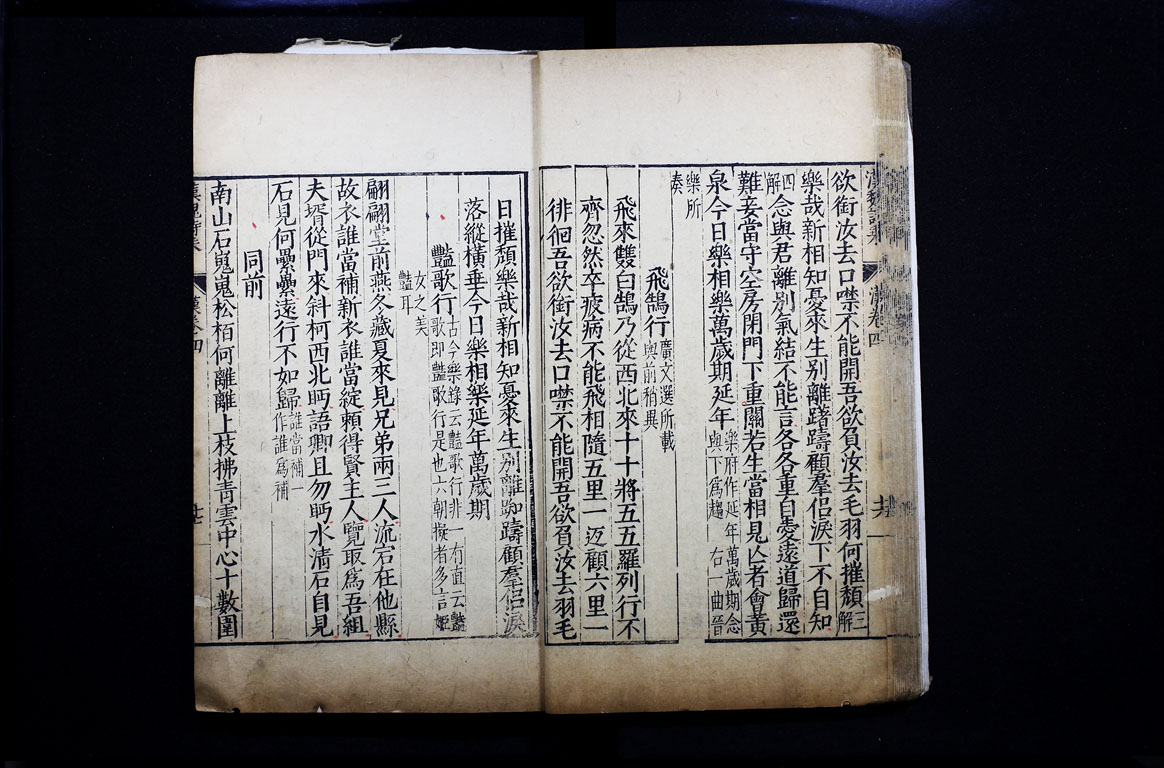 漢魏詩乘
漢卷四
欲銜汝去口噤不能開吾欲負汝去毛羽何摧頽三解
樂哉新相知憂來生别離躇躊顧羣侶淚下不自知
四解念與君離别氣結不能言各各重自愛遠道歸還
難妾當守空房閉門下重關若生當相見亾者會黃
泉今日樂相樂萬歲期延年樂府作延年萬歲期念與下爲趨 右一曲晉
樂所奏
飛鵠行廣文選所載與前稍異
飛來雙白鵠乃從西北來十十將五五羅列行不
齊忽然卒疲病不能飛相隨五里一返顧六里一
徘徊吾欲銜汝去口噤不能開吾欲負汝去羽毛
日摧頽樂哉新相知憂來生别離踟躊顧羣侶淚
落縱橫垂今日樂相樂延年萬歲期
豔歌行古今樂錄云豔歌行非一有直云豔歌即豔歌行是也六朝擬者多言姬
女之美豔耳
翩翩堂前燕冬藏夏來見兄弟兩三人流宕在他縣
故衣誰當補新衣誰當綻賴得賢主人覽取爲吾組
夫壻從門來斜柯西北眄語卿且勿眄水清石自見
石見何纍纍遠行不如歸誰當補一作誰爲補
同前
南山石嵬嵬松栢何離離上枝拂青雲中心十數圍
漢魏詩乘
漢卷四